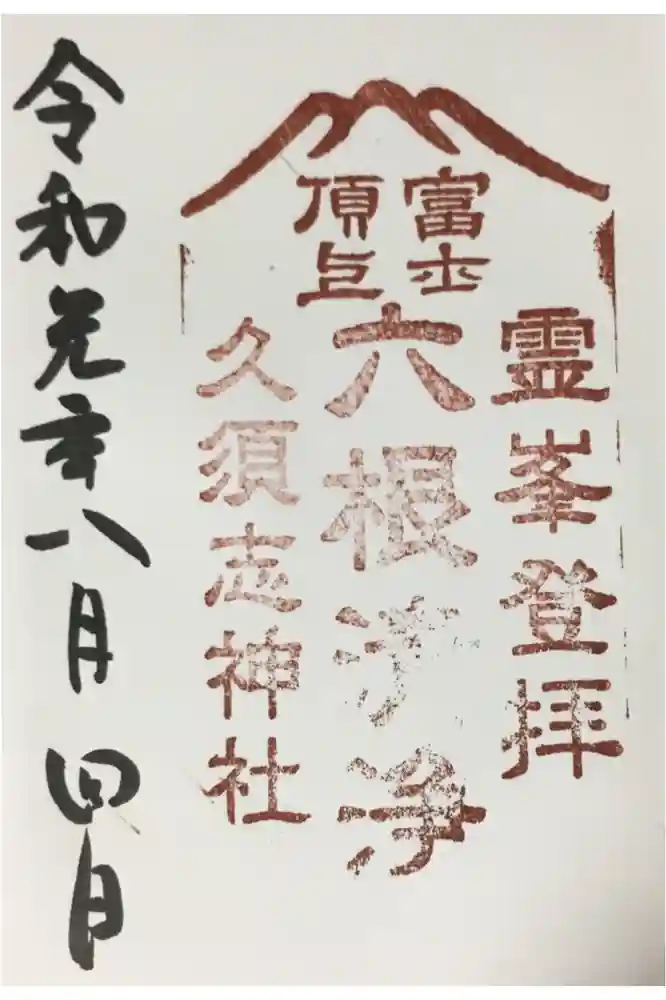 霊峯登拝
富士
頂上
六根清浄
久須志神社
令和元年八月四日